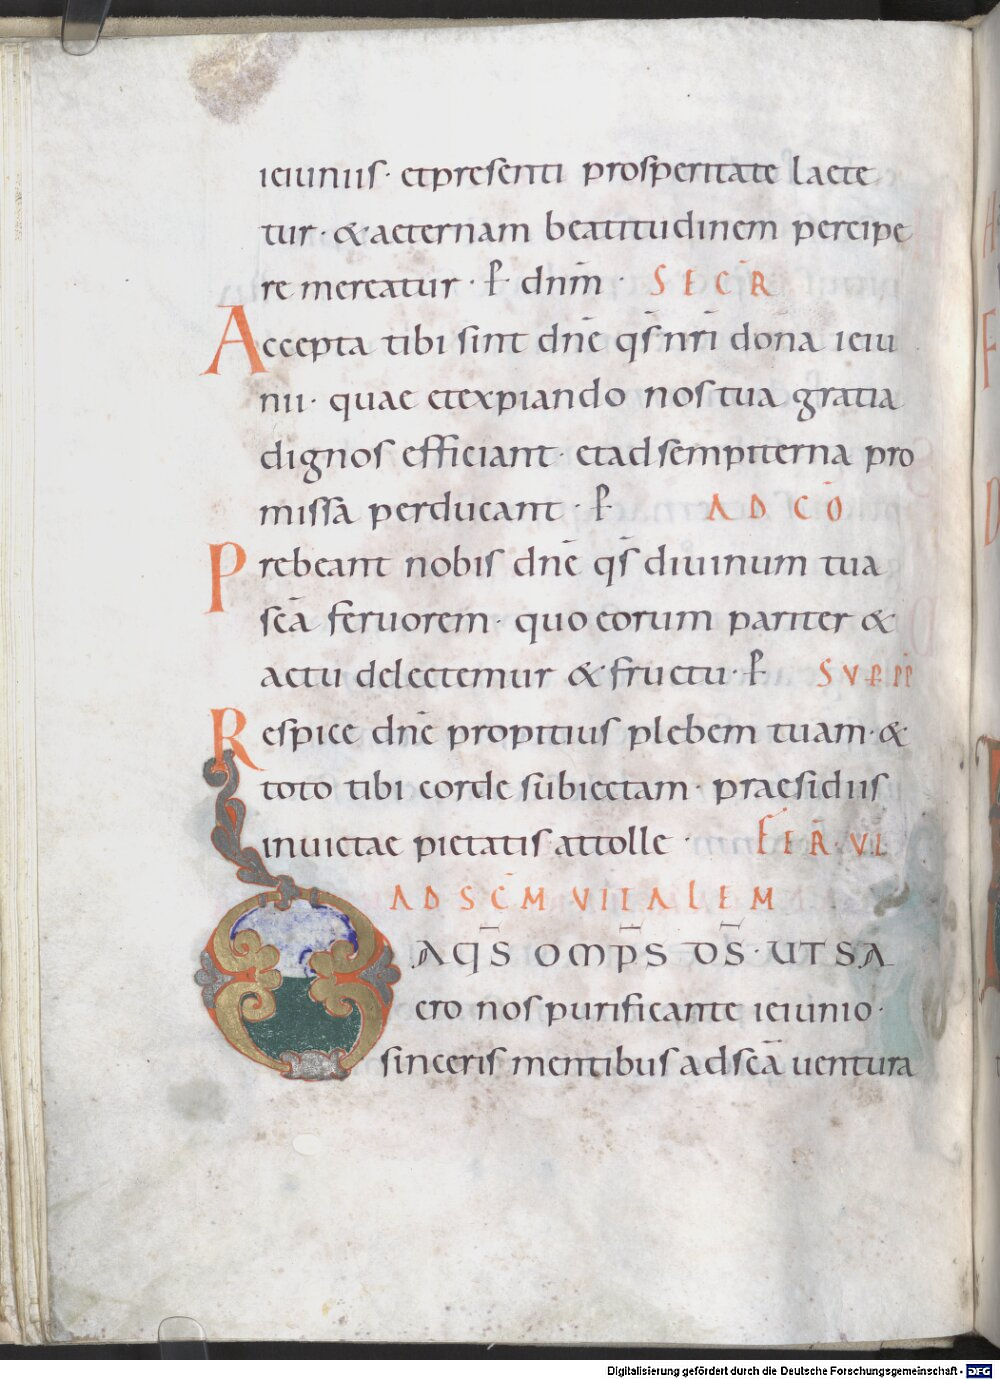 ieiuniis· et presenti prosperitate laete
tur· & aeternam beatitudinem percipe
re mereatur· ꝑ dn̄m· SECR̄
Accepta tibi sint dnē qs̄ nr̄i dona ieiu
nii· quae et expiando nos tua gratia
dignos efficiant· et ad sempiterna pro
missa perducant· ꝑ AD CŌ
Prebeant nobis dnē qs̄ diuinum tua
sc̄a feruorem· quo eorum pariter &
actu delectemur & fructu· ꝑ SUP PP
Respice dnē propitius plebem tuam· &
toto tibi corde subiectam· praesidiis
inuictae pietatis attolle· FER̄· VI
AD SC̄M VITALEM
DA QS̄ OMP̄S DS̄· UT SA
cro nos purificante ieiunio·
sinceris mentibus ad sc̄a uentura
Digitalisierung gefördert durch die Deutsche Forschungsgemeinschaft - DFG